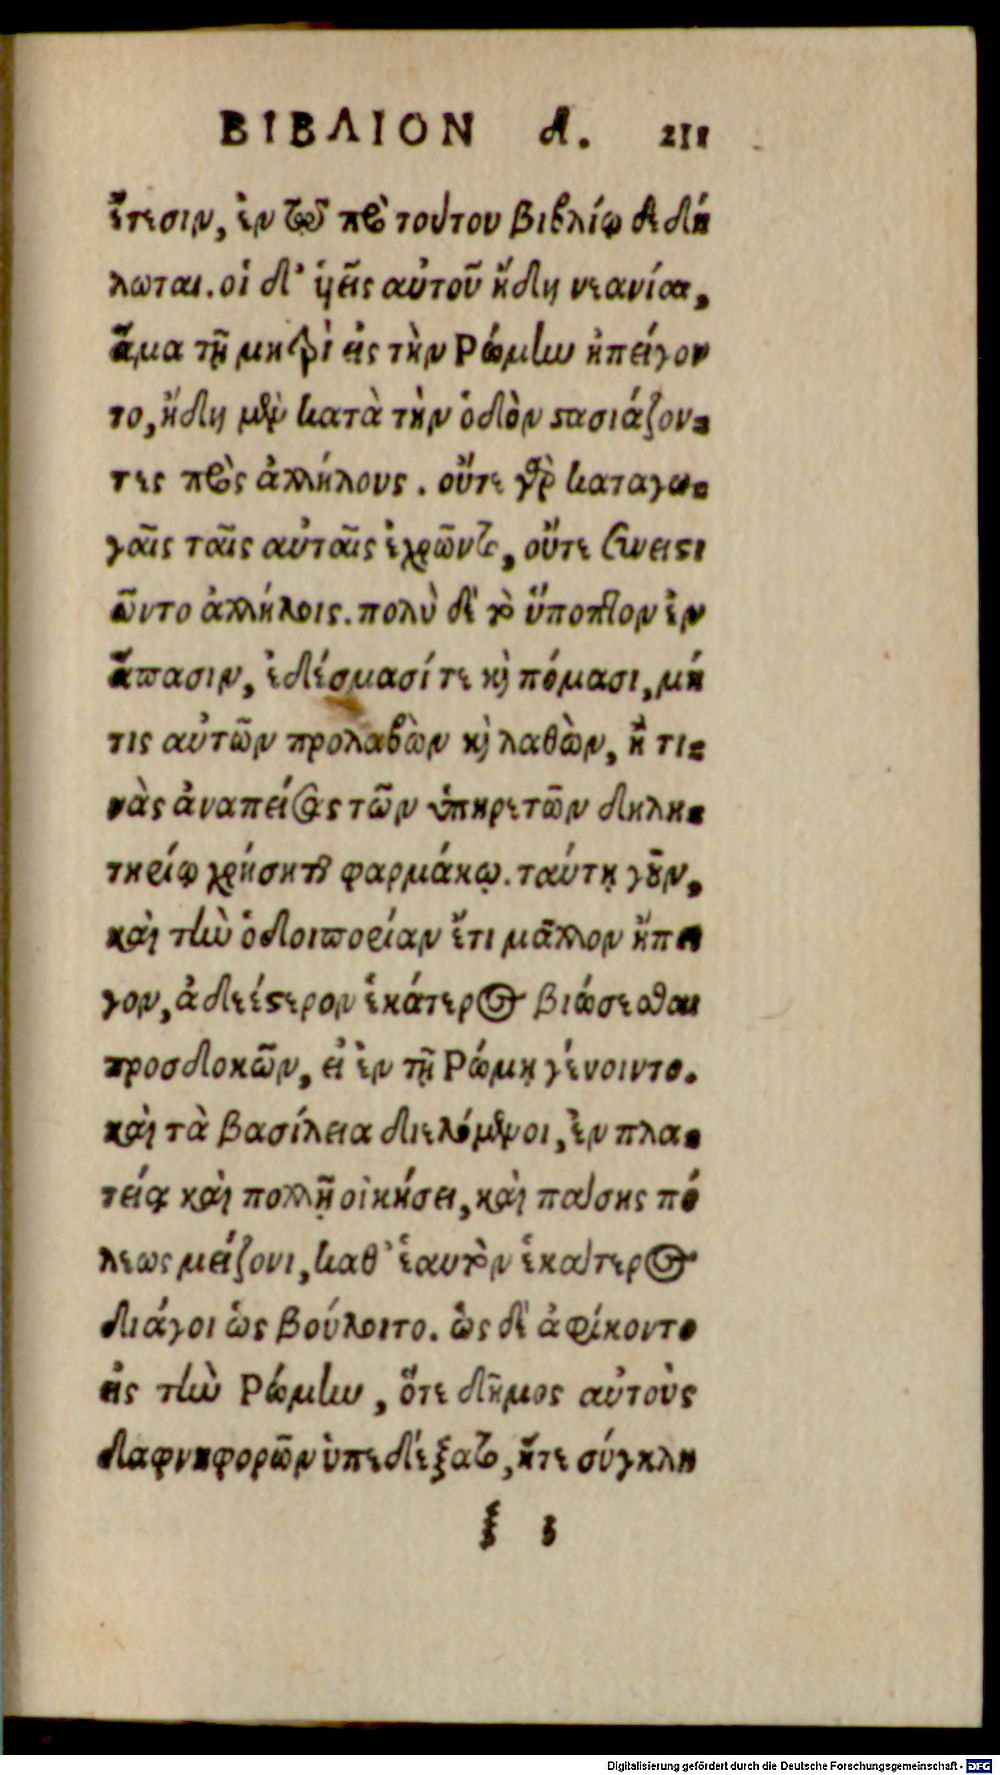 ΒΙΒΛΙΟΝ δ. 211
ἔτεσιν, ἐν τῷ πρὸ τούτου βιβλίῳ δεδή
λωται. οἱ δ' ὑεῖς αὐτοῦ ἤδη νεανίαι,
ἅμα τῇ μητρὶ εἰς τὴν Ρώμην ἠπείγον
το, ἤδη μὲν κατὰ τὴν ὁδὸν στασιάζον-
τες πρὸς ἀλλήλους. οὔτε γὰρ καταγω-
γαῖς ταῖς αὐταῖς ἐχρῶντο, οὔτε συνειστι
ῶντο ἀλλήλοις. πολὺ δὲ τὸ ὕποπτον ἐν
ἅπασιν, ἐδέσμασί τε καὶ πόμασι, μή
τις αὐτῶν προλαβὼν καὶ λαθὼν, ἤ τι-
νὰς ἀναπείσας τῶν ὑπηρετῶν δηλη-
τηρίῳ χρήσηται φαρμάκῳ. ταύτῃ γοῦν,
καὶ τὴν ὁδοιπορίαν ἔτι μᾶλλον ἤπει
γον, ἀδεέστερον ἑκάτερος βιώσεσθαι
προσδοκῶν, εἰ ἐν τῇ Ρώμῃ γένοιντο.
καὶ τὰ βασίλεια διελόμενοι, ἐν πλα-
τείᾳ καὶ πολλῇ οἰκήσει, καὶ πάσης πό
λεως μείζονι, καθ' ἑαυτὸν ἑκάτερος
διάγοι ὡς βούλοιτο. ὡς δὲ ἀφίκοντο
εἰς τὴν Ρώμην, ὅτε δῆμος αὐτοὺς
δαφνηφορῶν ὑπεδέξατο, ἥτε σύγκλη
ξ 3
Digitalisierung gefördert durch die Deutsche Forschungsgemeinschaft - DFG